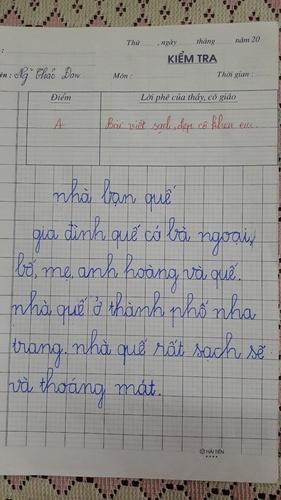 Thứ , ngày tháng năm 20
KIỂM TRA
ên: Ng̃ Thảo Đan Môn: Thời gian:
Điểm Lời phê của thầy, cô giáo
A Bài viết sạch, đẹp cô khen em.
nhà bạn quế
gia đình quế có bà ngoại,
bố, mẹ, anh hoàng và quế.
nhà quế ở thành phố nha
trang. nhà quế rất sạch sẽ
và thoáng mát.
HẢI TIẾN